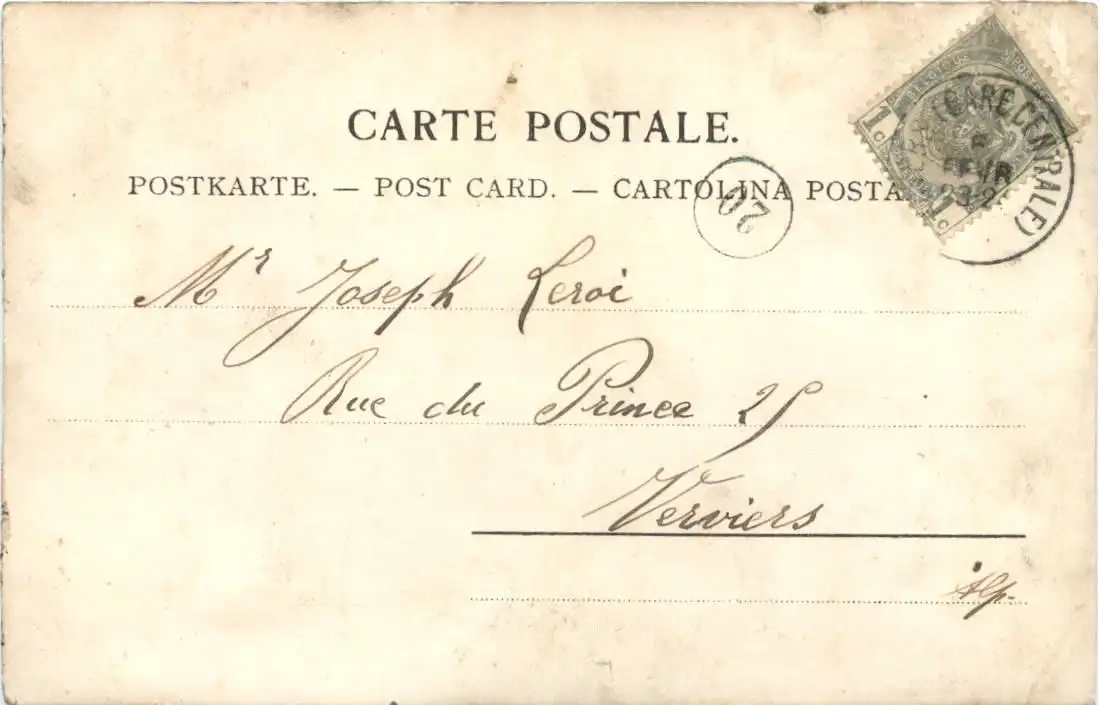 CARTE POSTALE.
POSTKARTE. — POST CARD. — CARTOLINA POSTA
(GARE CENTRALE)
FEVR
1 c
1 c
20
Mr Joseph Leroi
Rue du Prince 25
Verviers